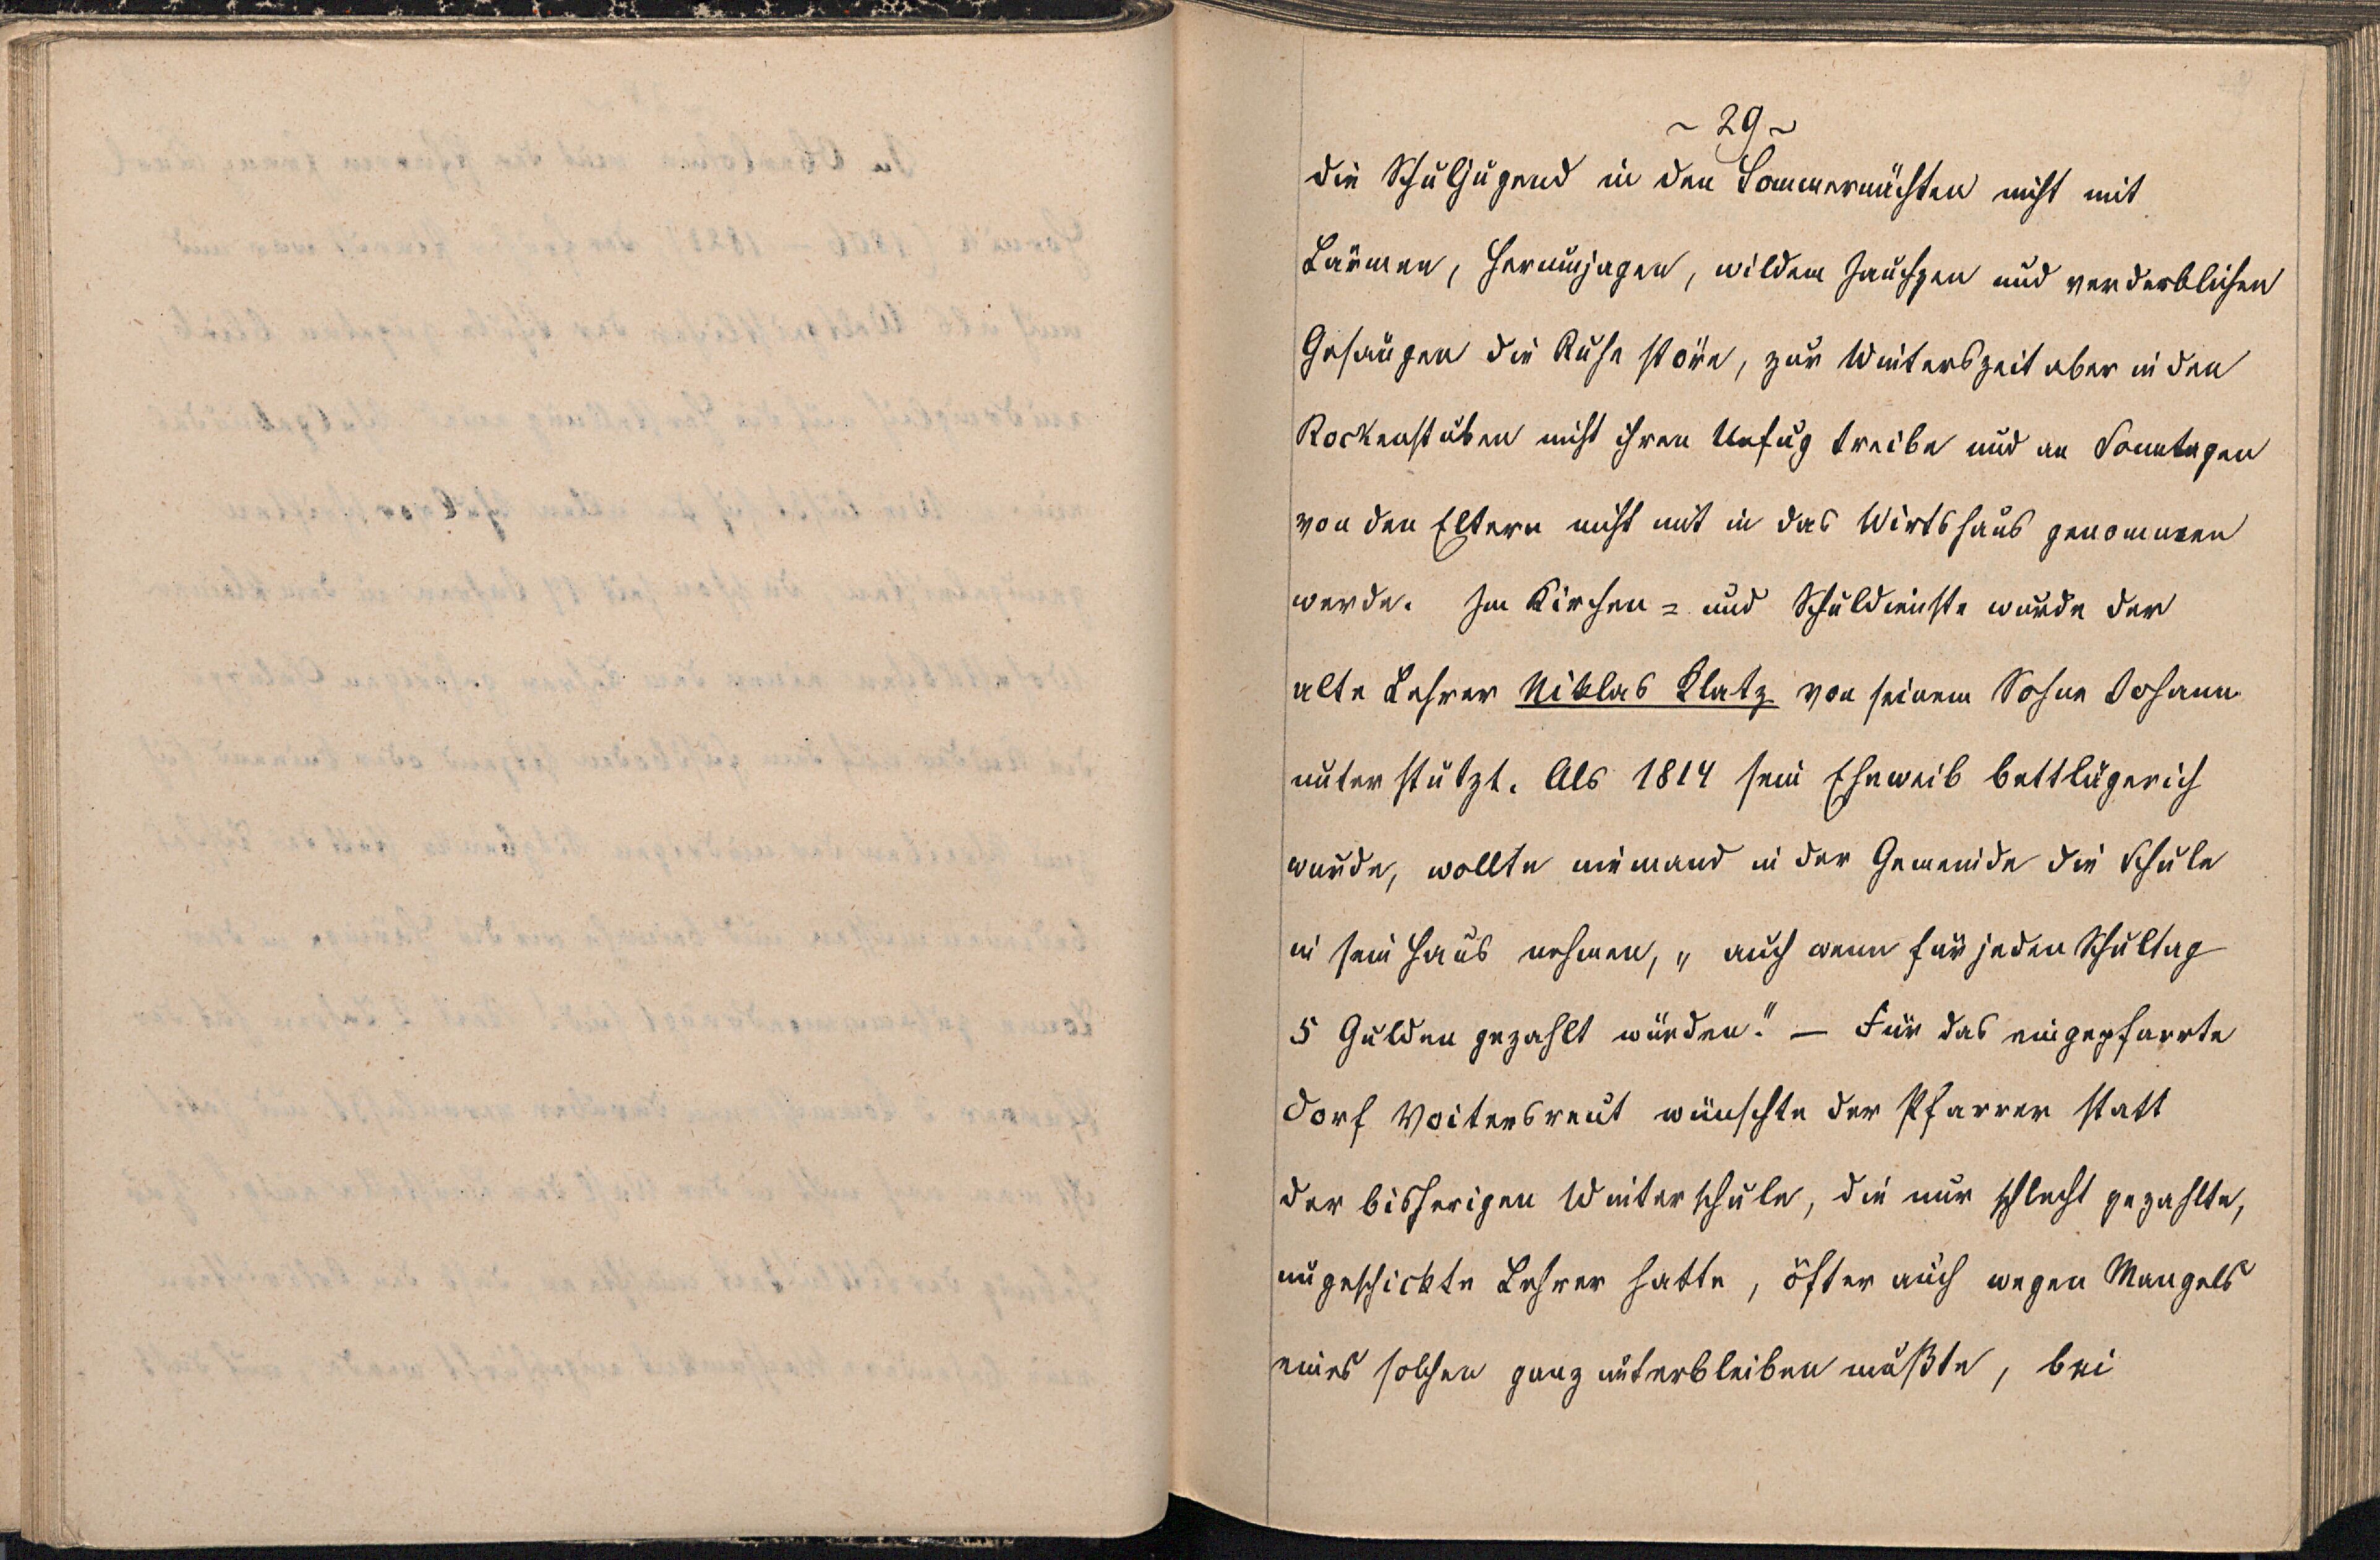 ~ 29 ~
die Schuljugend in den Sommernächten nicht mit
Lärmen, Herumjagen, wildem Jauchzen und verderblichen
Gesängen die Ruhe störe, zur Winterszeit aber in den
Rockenstuben nicht ihren Unfug treibe und an Sonntagen
von den Eltern nicht mit in das Wirtshaus genommen
werde. Im Kirchen= und Schuldienste wurde der
alte Lehrer Niklas Klatz von seinem Sohne Johann
unterstützt. Als 1814 sein Eheweib bettlägerich
wurde, wollte niemand in der Gemeinde die Schule
in sein Haus nehmen, „auch wenn für jeden Schultag
5 Gulden gezahlt würden." — Für das eingepfarrte
Dorf Voitersreut wünschte der Pfarrer statt
der bisherigen Winterschule, die nur schlecht gezahlte,
ungeschickte Lehrer hatte, öfter auch wegen Mangels
eines solchen ganz unterbleiben mußte, bei